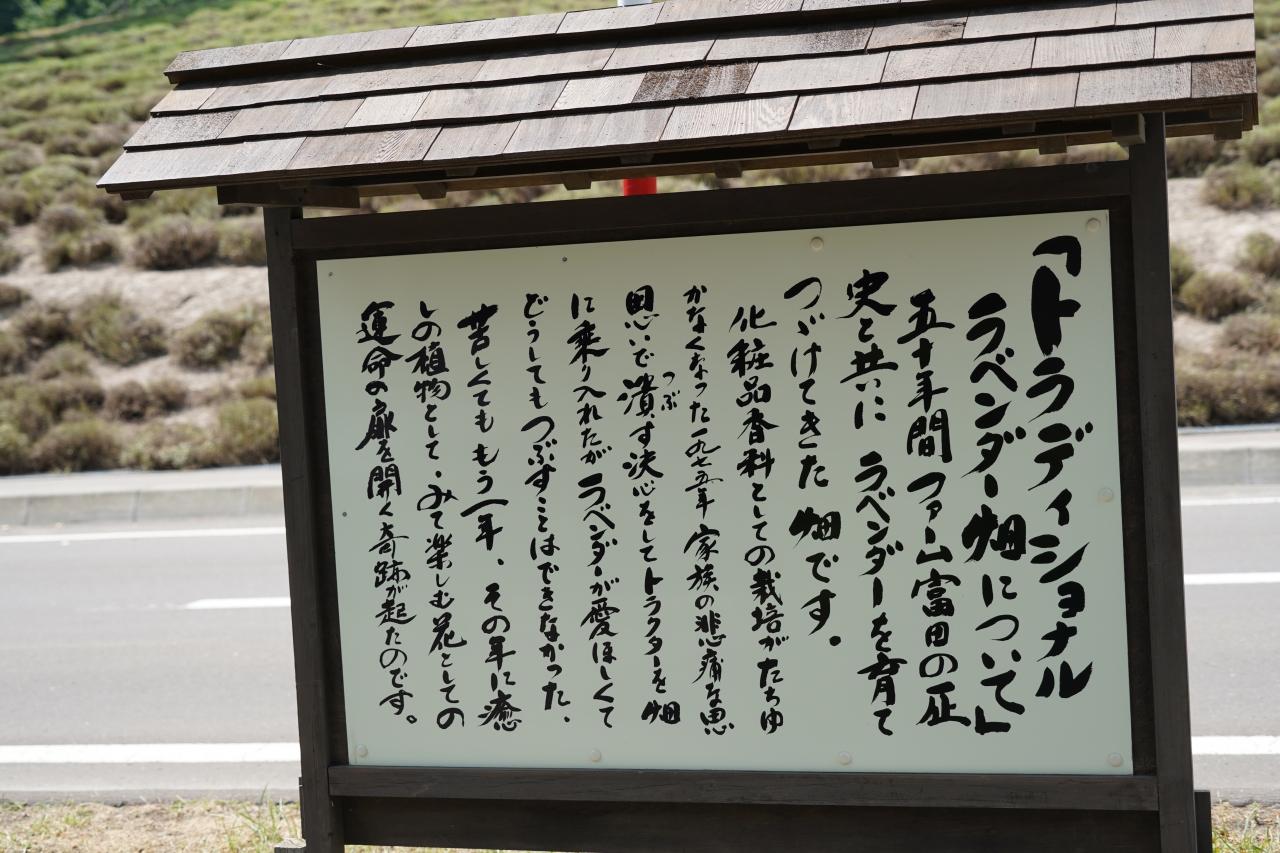 「トラディショナル
ラベンダー畑について」
五十年間ファーム富田の歴
史と共に ラベンダーを育て
つゞけてきた 畑です。
化粧品香料としての栽培がたちゆ
かなくなった一九七五年 家族の悲痛な思
思いで潰す決心をしてトラクターを 畑
つぶ
に乗り入れたが ラベンダーが愛ほしくて
どうしてもつぶすことはできなかった、
苦しくてももう一年、その年に癒
しの植物として・みて楽しむ花としての
運命の扉を開く奇跡が起たのです。